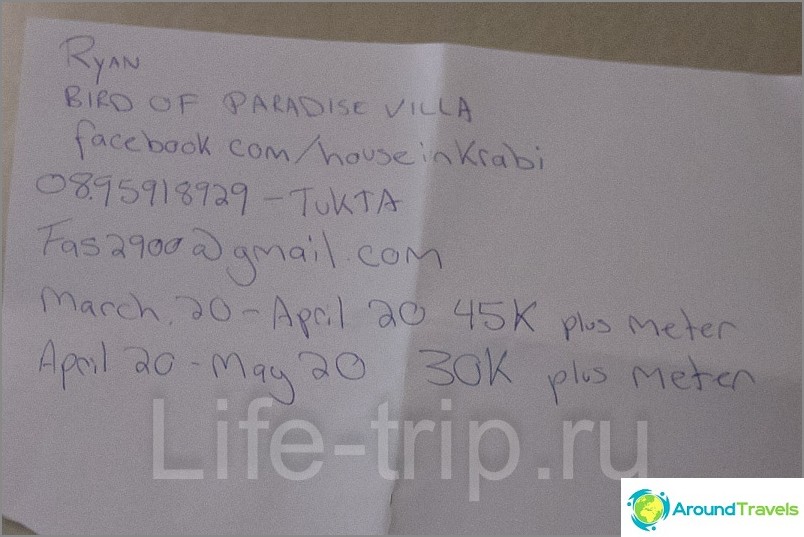 Ryan
BIRD OF PARADISE VILLA
facebook com/houseinKrabi
0895918929 - TUKTA
Fas2900@gmail.com
March. 20 - April 20 45K plus meter
April 20 - May 20 30K plus meter
Life-trip.ru
AroundTravels